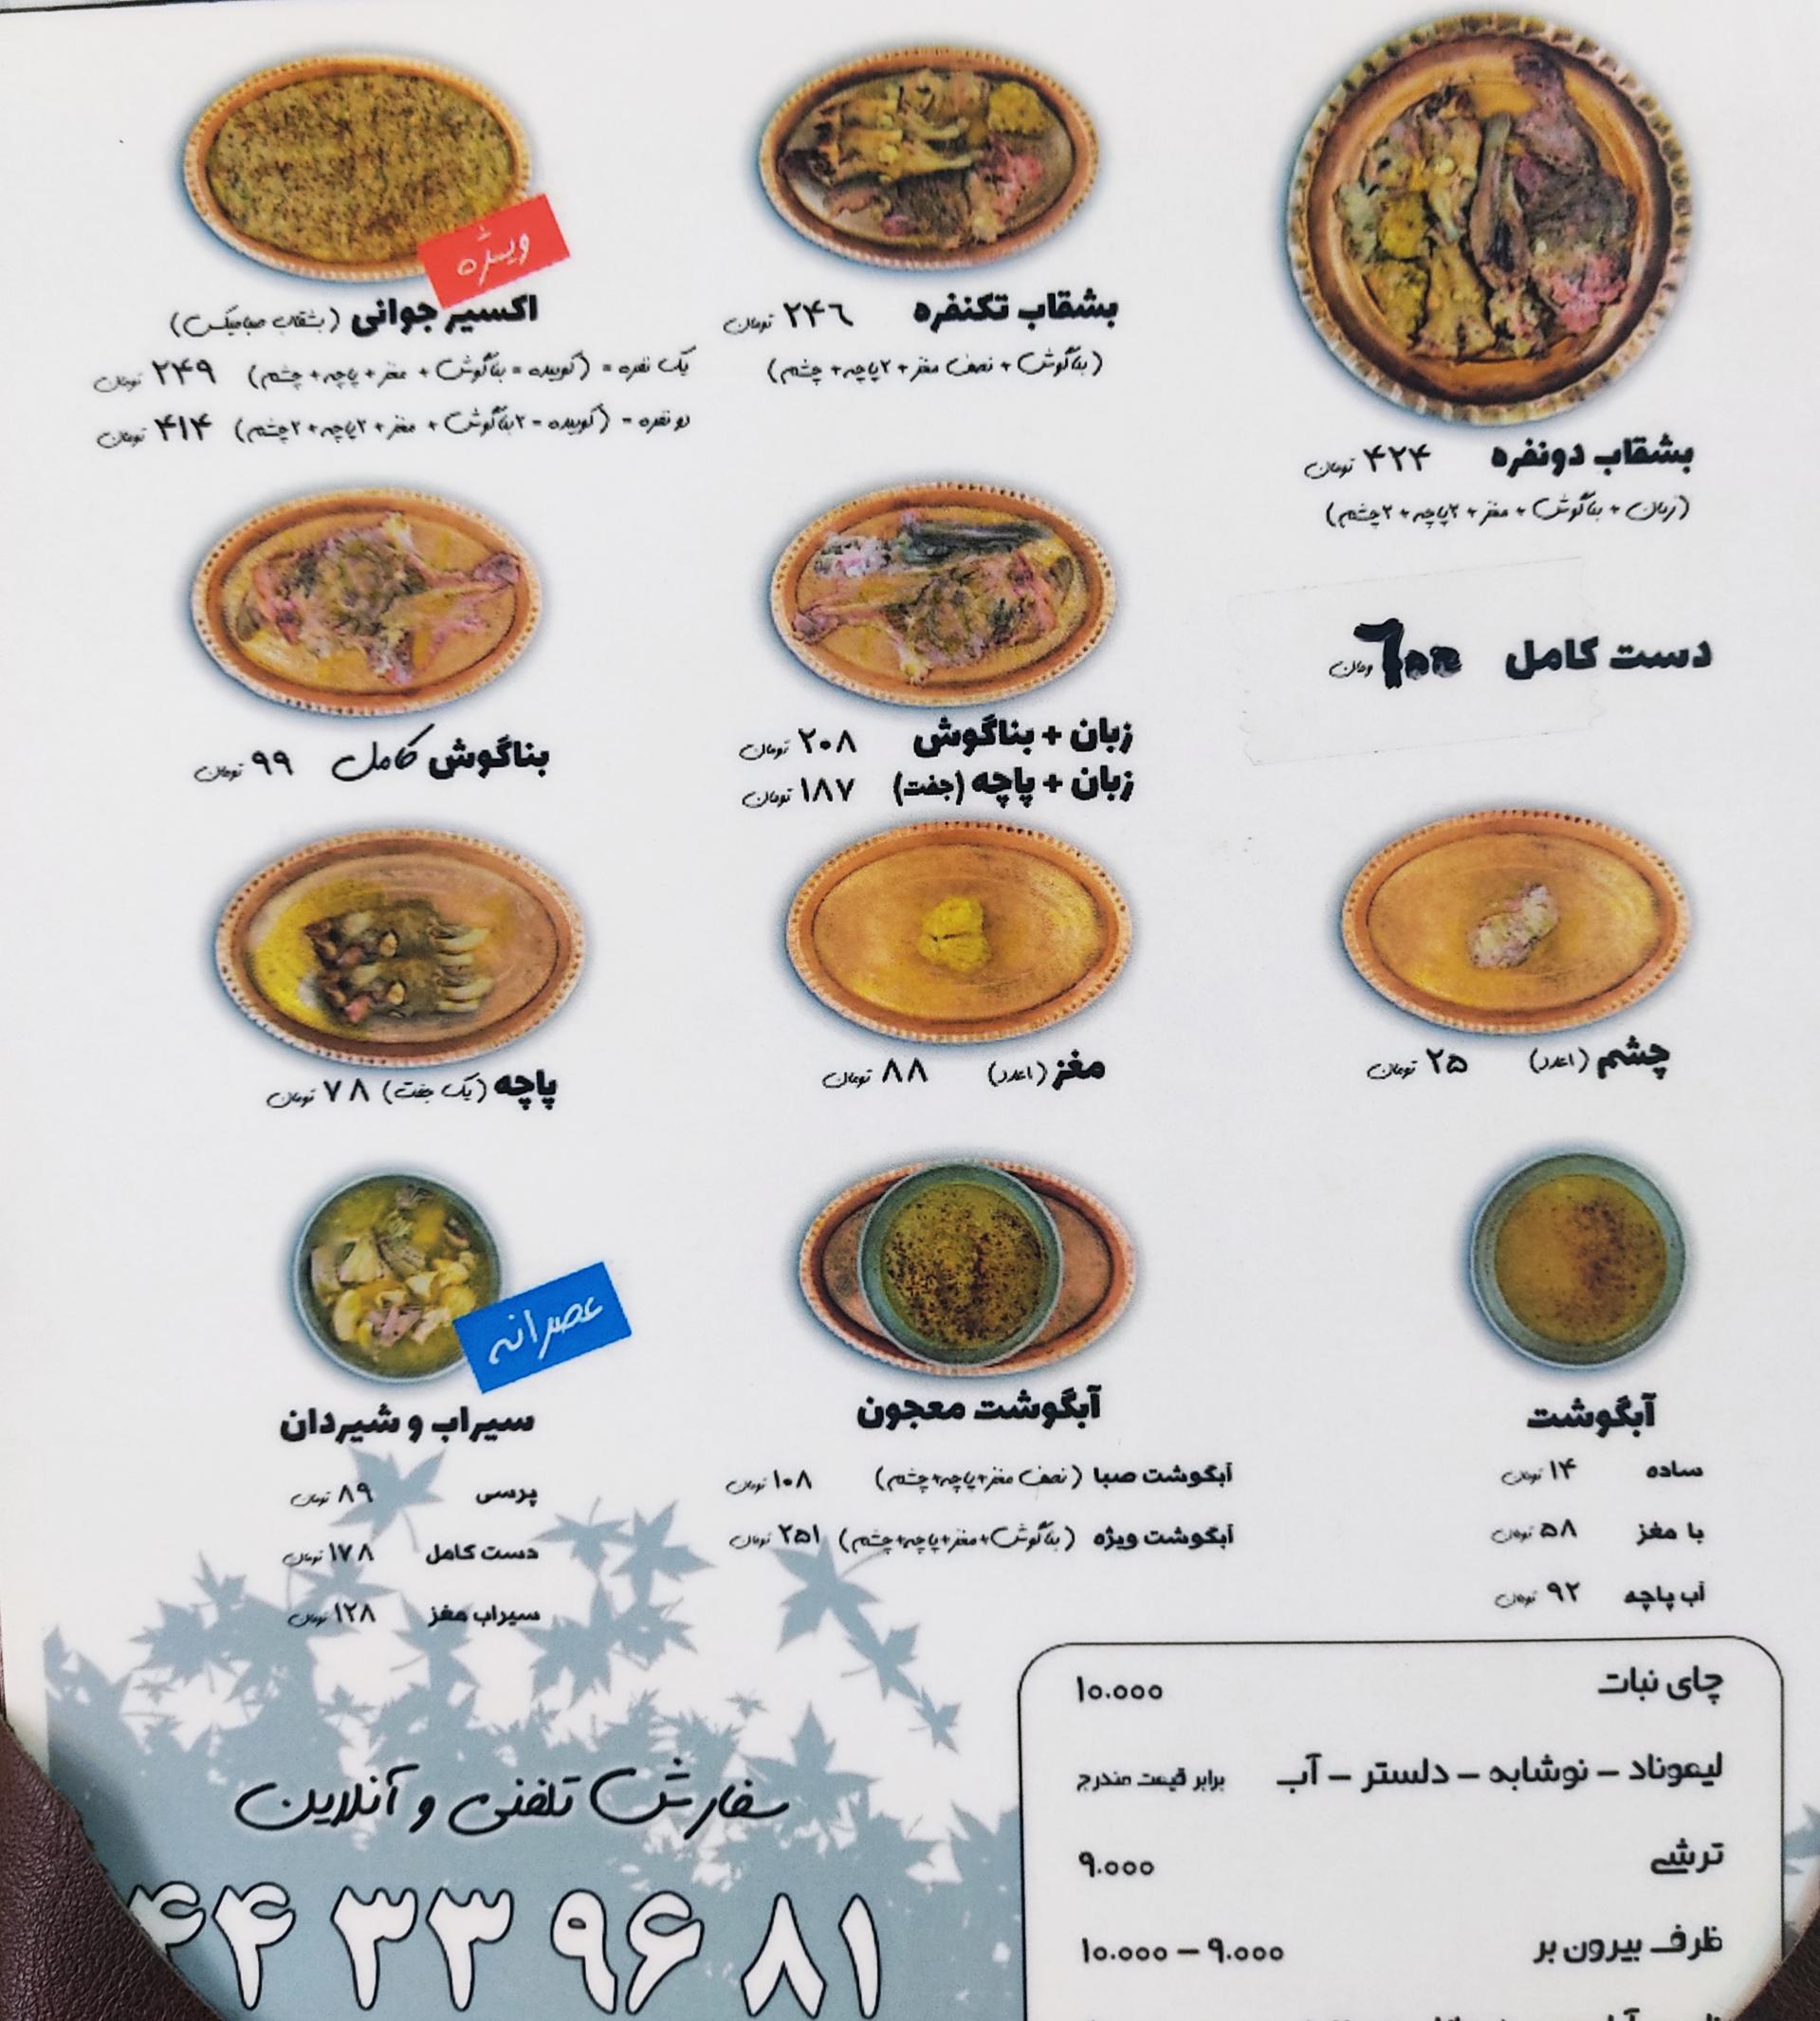 ویژه
اکسیر جوانی (بشقاب صبامیکس)
یک نفره = (کوبیده = بناگوش + مغز + پاچه + چشم) ۲۴۹ تومان
دو نفره = (کوبیده = ۲ بناگوش + مغز + ۲ پاچه + ۲ چشم) ۴۱۴ تومان
بشقاب تکنفره ۲۴۶ تومان
(بناگوش + نصف مغز + ۲ پاچه + چشم)
بشقاب دونفره ۴۲۴ تومان
(زبان + بناگوش + مغز + ۲ پاچه + ۲ چشم)
دست کامل تومان
زبان + بناگوش ۲۰۸ تومان
زبان + پاچه (جفت) ۱۸۷ تومان
بناگوش کامل ۹۹ تومان
چشم (۱عدد) ۲۵ تومان
مغز (۱عدد) ۸۸ تومان
پاچه (یک جفت) ۷۸ تومان
آبگوشت
ساده ۱۴ تومان
با مغز ۵۸ تومان
آب پاچه ۹۲ تومان
آبگوشت معجون
آبگوشت صبا (نصف مغز+پاچه+چشم) ۱۰۸ تومان
آبگوشت ویژه (بناگوش+مغز+پاچه+چشم) ۲۵۱ تومان
عصرانه
سیراب و شیردان
پرسی ۸۹ تومان
دست کامل ۱۷۸ تومان
سیراب مغز ۱۲۸ تومان
چای نبات ۱۰.۰۰۰
لیموناد – نوشابه – دلستر – آب برابر قیمت مندرج
ترشی ۹.۰۰۰
ظرف بیرون بر ۹.۰۰۰ – ۱۰.۰۰۰
سفارش تلفنی و آنلاین
۴۴ ۳۳ ۹۶ ۸۱